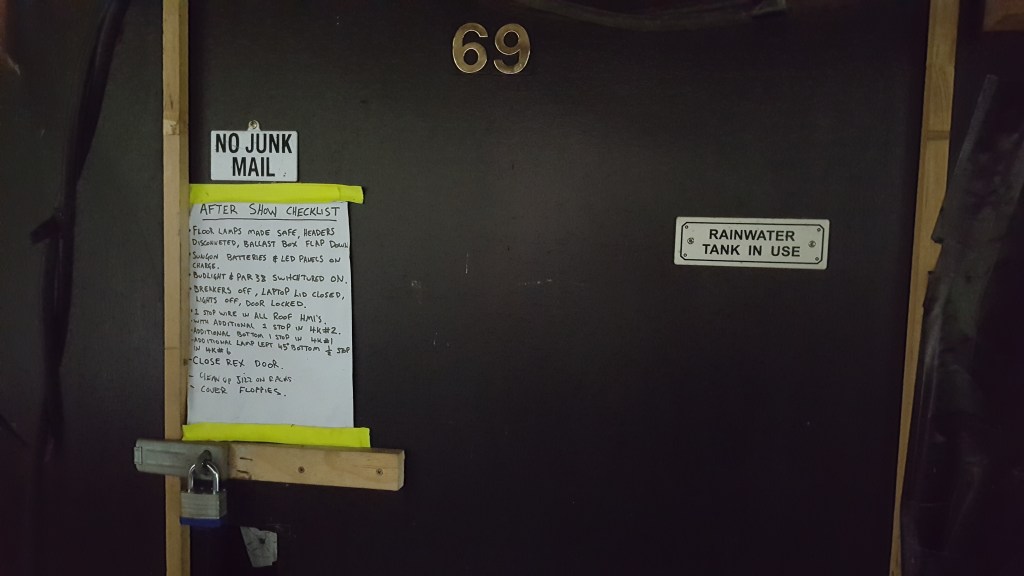 69
NO JUNK
MAIL
AFTER SHOW CHECKLIST
- FLOOR LAMPS MADE SAFE, HEADERS
DISCONNETED, BALLAST BOX FLAP DOWN
- SUNGUN BATTERIES & LED PAUELS ON
CHARGE.
- BUDLIGHT & PAR 38 SWITCHTURED ON.
- BREAKERS OFF, LAPTOP LID CLOSED,
LIGHTS OFF, DOOR LOCKED.
- 2 STOP WIRE IN ALL ROOF HMI'S.
- WITH ADDITIONAL 2 STOP IN 4K#2.
- ADDITIONAL BOTTOM 1 STOP IN 4K#1
- ADDITIONAL LAMP LEFT 45° BOTTOM ½ STOP
IN 4K#6
- CLOSE REX DOOR.
- CLEAN UP JIZZ ON RACKS
- COVER FLOPPIES.
RAINWATER
TANK IN USE